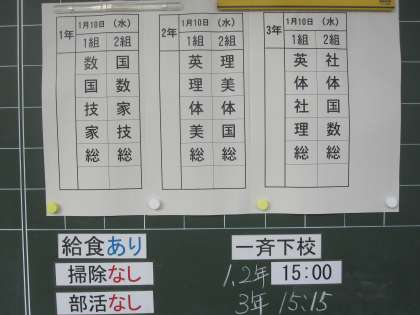 1年 1月10日 (水)
1組 2組
数 国
国 数
技 家
家 技
総 総
2年 1月10日 (水)
1組 2組
英 理
理 美
体 体
美 国
総 総
3年 1月10日 (水)
1組 2組
英 社
体 体
社 国
理 数
総 総
給食あり
掃除なし
部活なし
一斉下校
1,2年 15:00
3年 15:15